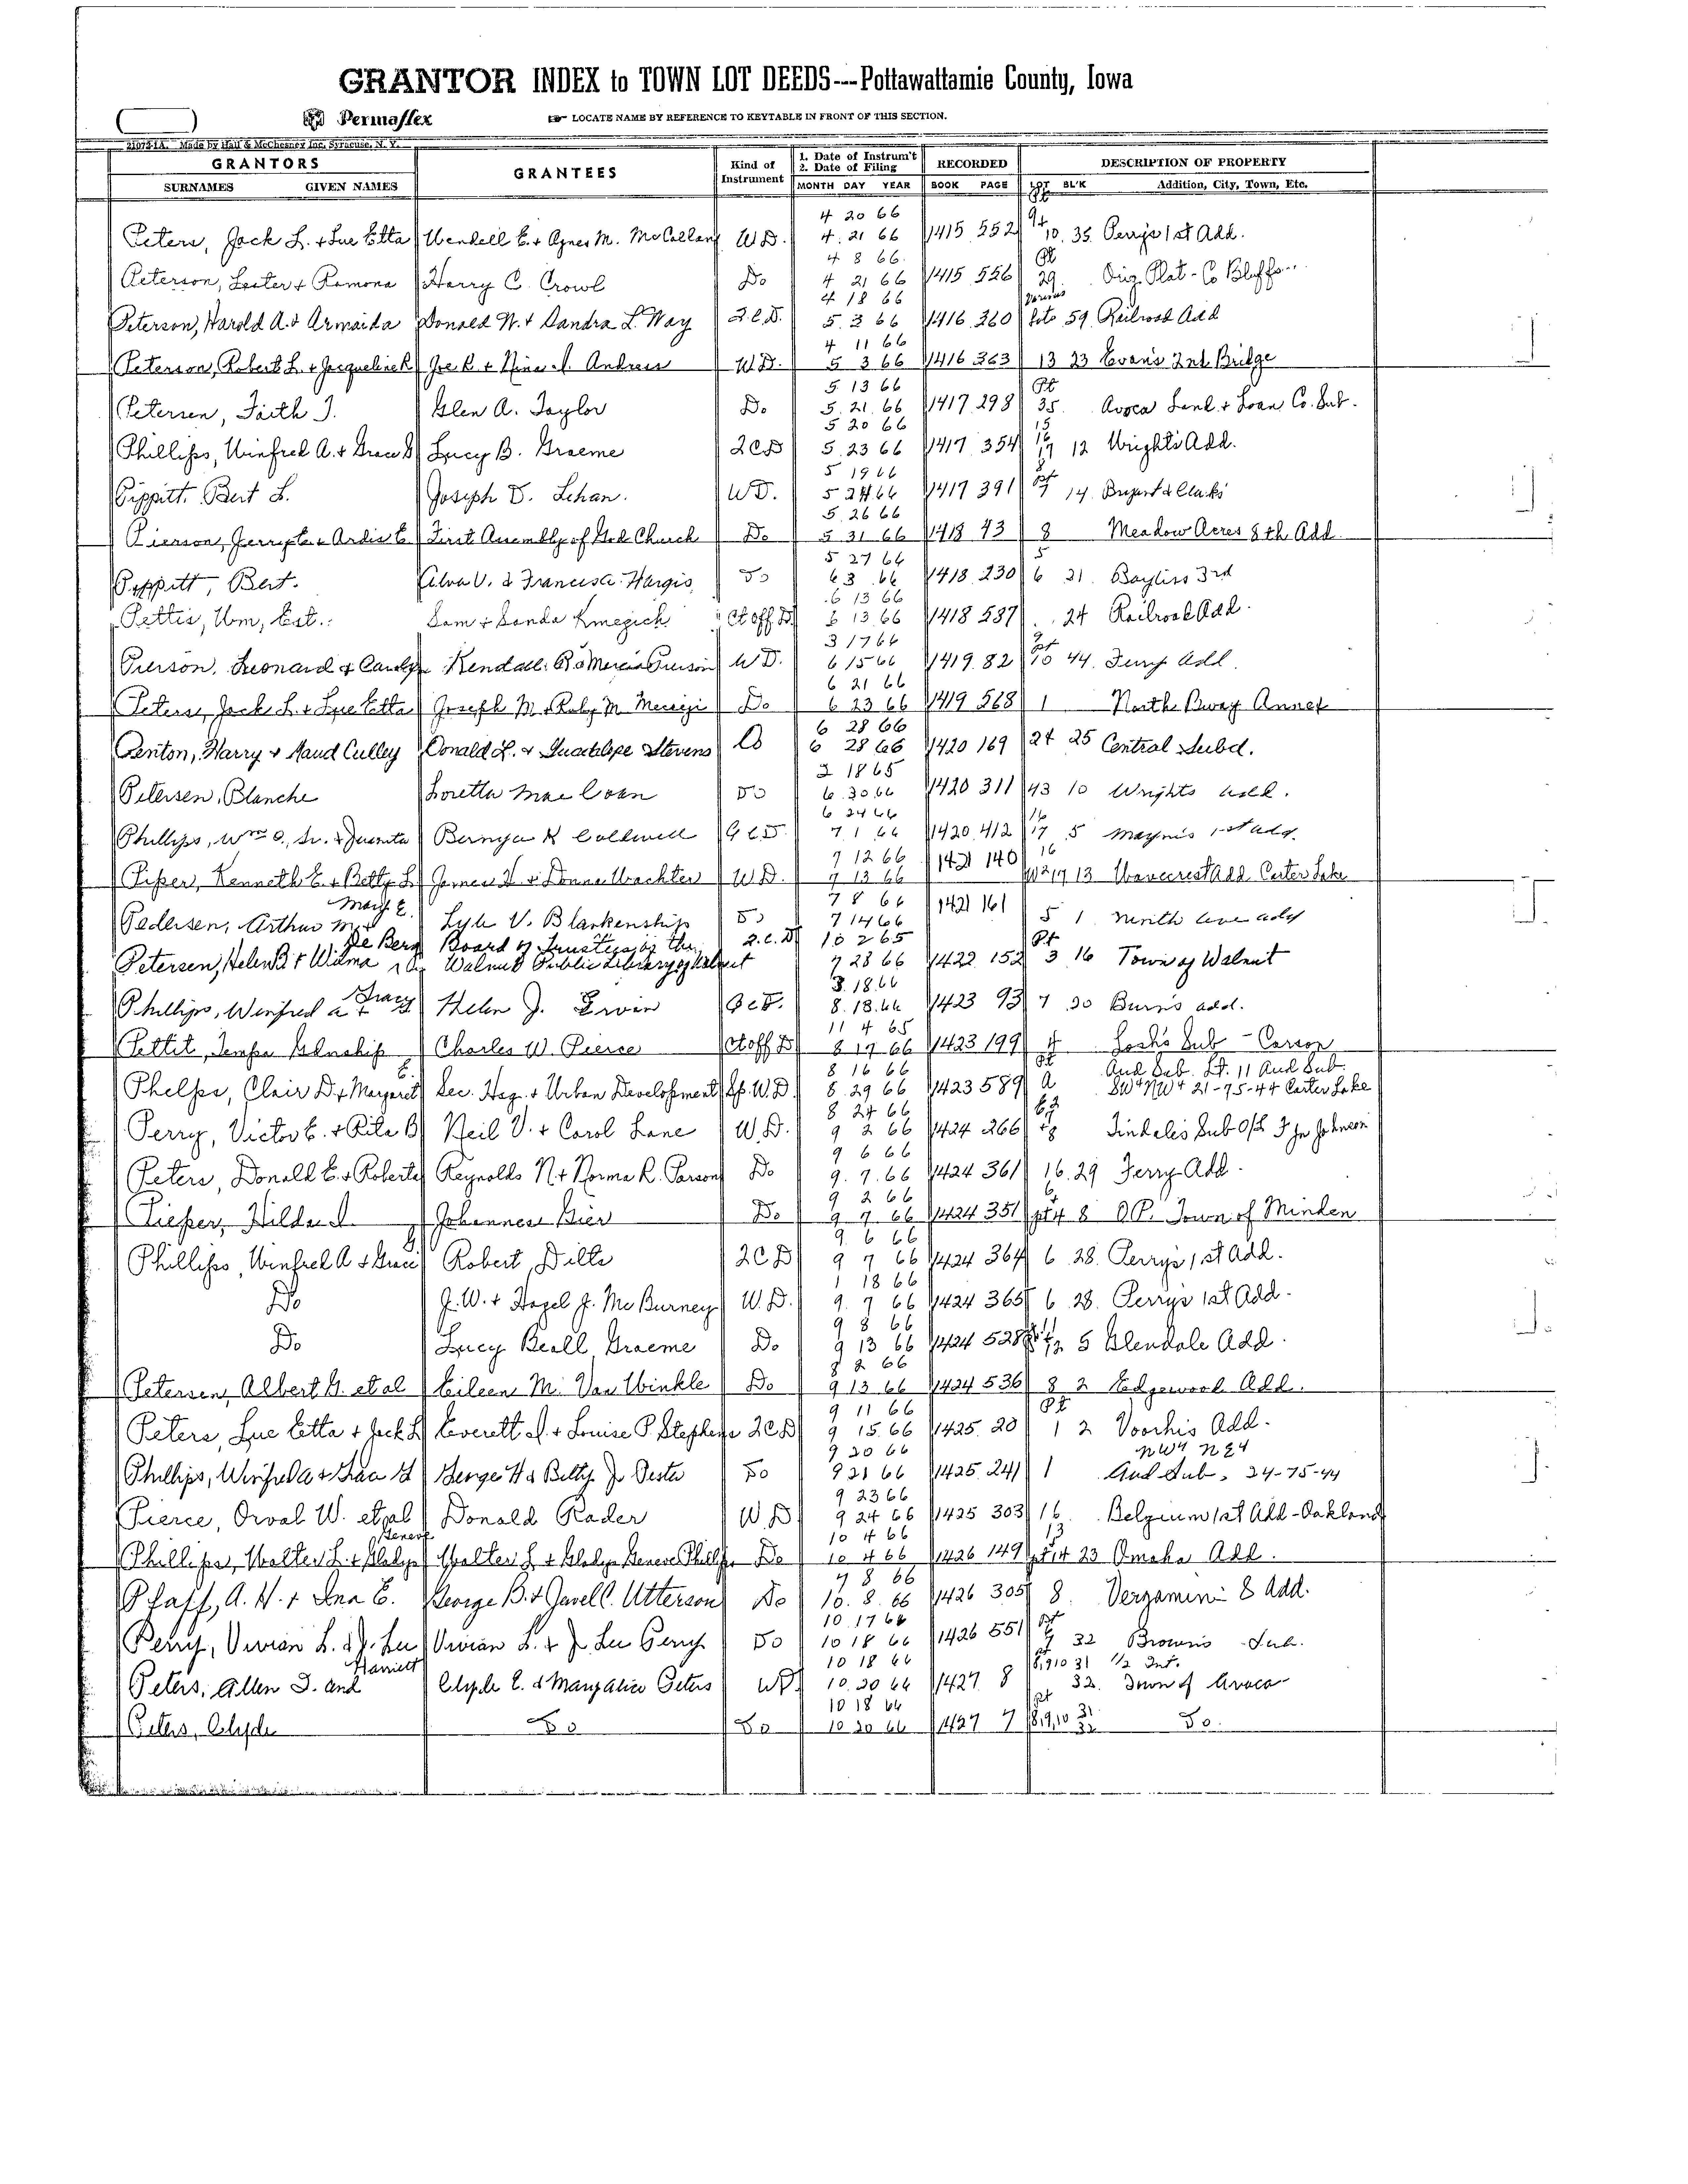 GRANTOR INDEX to TOWN LOT DEEDS---Pottawattamie County, Iowa
Permaflex ☞ LOCATE NAME BY REFERENCE TO KEYTABLE IN FRONT OF THIS SECTION.
Made by Hall & McChesney Inc. Syracuse, N. Y.
GRANTORS GRANTEES Kind of Instrument 1. Date of Instrum't 2. Date of Filing RECORDED DESCRIPTION OF PROPERTY
SURNAMES GIVEN NAMES MONTH DAY YEAR BOOK PAGE LOT BL'K Addition, City, Town, Etc.
4 20 66 Pt
Peters, Jack L. + Sue Etta Wendell E. + Agnes M. W.D. 4 21 66 1415 552 9+ 10 35 Perrys 1st Add.
4 8 66 Pt
Peterson, Lester + Ramona Harry C. Crowl Do 4 21 66 1415 556 29 Orig. Plat - Co Bluffs
4 18 66 Various
Peterson, Harold A. + Armaida Donald W. + Sandra L. Way Q.C.D. 5 3 66 1416 360 lots 59 Railroad Add
4 11 66
Peterson, Robert L. + Jacqueline K Joe R + Nina J. Andrews W.D. 5 3 66 1416 363 13 23 Evans 2nd Bridge
5 13 66 Pt
Petersen, Faith J. Glen A. Taylor Do 5 21 66 1417 298 35 Avoca Land + Loan Co. Sub.
5 20 66 15 16
Phillips, Winfred A. + Lucy B. Graeme QCD 5 23 66 1417 354 17 12 Wrights Add.
5 19 66
Pippitt Bert L. Joseph D. Lehan. WD. 5 24 66 1417 391 14 Bryant & Clarks
5 26 66
Pierson, + Ardis E First Assembly of God Church Do 5 31 66 1418 43 8 Meadow Acres 8th Add.
5 27 66 5
Pippitt, Bert. Alva V. & Frances A. Hargis Do 6 3 66 1418 230 6 21 Bayliss 3rd
6 13 66
Pettis, Wm, Est. Sam + Sonda Kmezich Ct off D 6 13 66 1418 587 24 Railroad Add.
3 17 66 9
Pierson, Leonard & Carolyn Kendall R. & Marcia Pierson W D. 6 15 66 1419 82 10 44 Ferry Add.
6 21 66
Peters, Jack L. + Sue Etta Joseph M + Ruby M Do 6 23 66 1419 568 1 North Bway Annex
6 28 66
Penton, Harry + Maud Culley Donald L. + Guadalupe Stevens Do 6 28 66 1420 169 24 25 Central Subd.
2 18 65
Petersen, Blanche Loretta Mae Coan Do 6 30 66 1420 311 43 10 Wrights Add.
6 24 66 16
Phillips, Wm O., Sr. + Juanita Bernya K Caldwell QCD. 7 1 66 1420 412 17 5 Maynes 1st Add.
7 12 66 16
Piper, Kenneth E. + Betty L. James + Donna Wachter W.D. 7 13 66 1421 140 W2 17 13 Wavecrest Add Carter Lake
Mary E. 7 8 66
Pedersen, Arthur M + Lyle V. Blankenship Do 7 14 66 1421 161 5 1
De Berg Board of Trustees of the Q.C.D. 10 2 65 Pt
Petersen, Helen B + Wilma Walnut Public Library of Walnut 7 28 66 1422 152 3 16 Town of Walnut
8 18 66
Phillips, Winfred A + Tracy Helen J. Erwin QCD. 8 18 66 1423 93 7 30 Burns add.
11 4 65
Pettit, Charles W. Pierce Ct off D 8 19 66 1423 199 4 Sub - Carson
8 16 66 Pt Aud Sub. Lt. 11 Aud Sub.
Phelps, Clair D + Margaret E. Sec. Hsg. + Urban Development Sp. W.D. 8 29 66 1423 589 A SW4 NW4 21-75-44 Carter Lake
8 24 66 6,7
Perry, Victor E. + Rita B Neil V. + Carol Lane W.D. 9 2 66 1424 266 +8 Tinkeles Sub O/L J Jn Johnson
9 6 66
Peters, Donald E. + Roberta Reynolds N + Norma R. Parson Do 9 7 66 1424 361 16 29 Ferry Add.
9 2 66
Pieper, Hilda Johannes Bier Do 9 7 66 1424 351 pt 4 8 O.P. Town of Minden
9 6 66
Phillips, Winfred A + Robert Dilts QCD 9 7 66 1424 364 6 28 Perrys 1st Add.
1 18 66
Do J. W. + Hazel J. McBurney W.D. 9 7 66 1424 365 6 28 Perrys 1st Add.
9 8 66
Do Lucy Beall Graeme Do 9 13 66 1424 528 5 Glendale Add.
8 2 66
Petersen, Albert G. et al Eileen M. Van Winkle Do 9 13 66 1424 536 8 2 Edgewood Add.
9 11 66 Pt
Peters, Sue Etta + Jack L Everett J. + Louise P. Stephens QCD 9 15 66 1425 20 1 2 Voorhis Add.
9 20 66 NW4 NE4
Phillips, Winfred A + George H & Betty J. Oester Do 9 21 66 1425 241 1 Aud Sub. 24-75-44
9 23 66
Pierce, Orval W. et al Donald Rader W.D 9 24 66 1425 303 16 Belgium 1st Add - Oakland
Geneve 10 4 66 13
Phillips, Walter L. + Gladys Walter L + Gladys Geneve Phillips Do 10 4 66 1426 149 pt 14 23 Omaha Add.
7 8 66
Pfaff, A. W. + Ina E. George B. + Javell C. Utterson Do 10 8 66 1426 305 8 Vergamini 8 Add.
10 17 66 Pt
Perry, Vivian L. & J. Lee Vivian L. + J. Lee Perry Do 10 18 66 1426 551 7 32 Browns Sub.
Harriett 10 18 66 8,9,10 31 1/2 Int.
Peters, Allen D. and Clyde E. & Mary Alice Peters WD 10 20 66 1427 8 32 Town of Avoca
10 18 66 pt
Peters, Clyde Do Do 10 20 66 1427 7 8,9,10 31 32 Do.